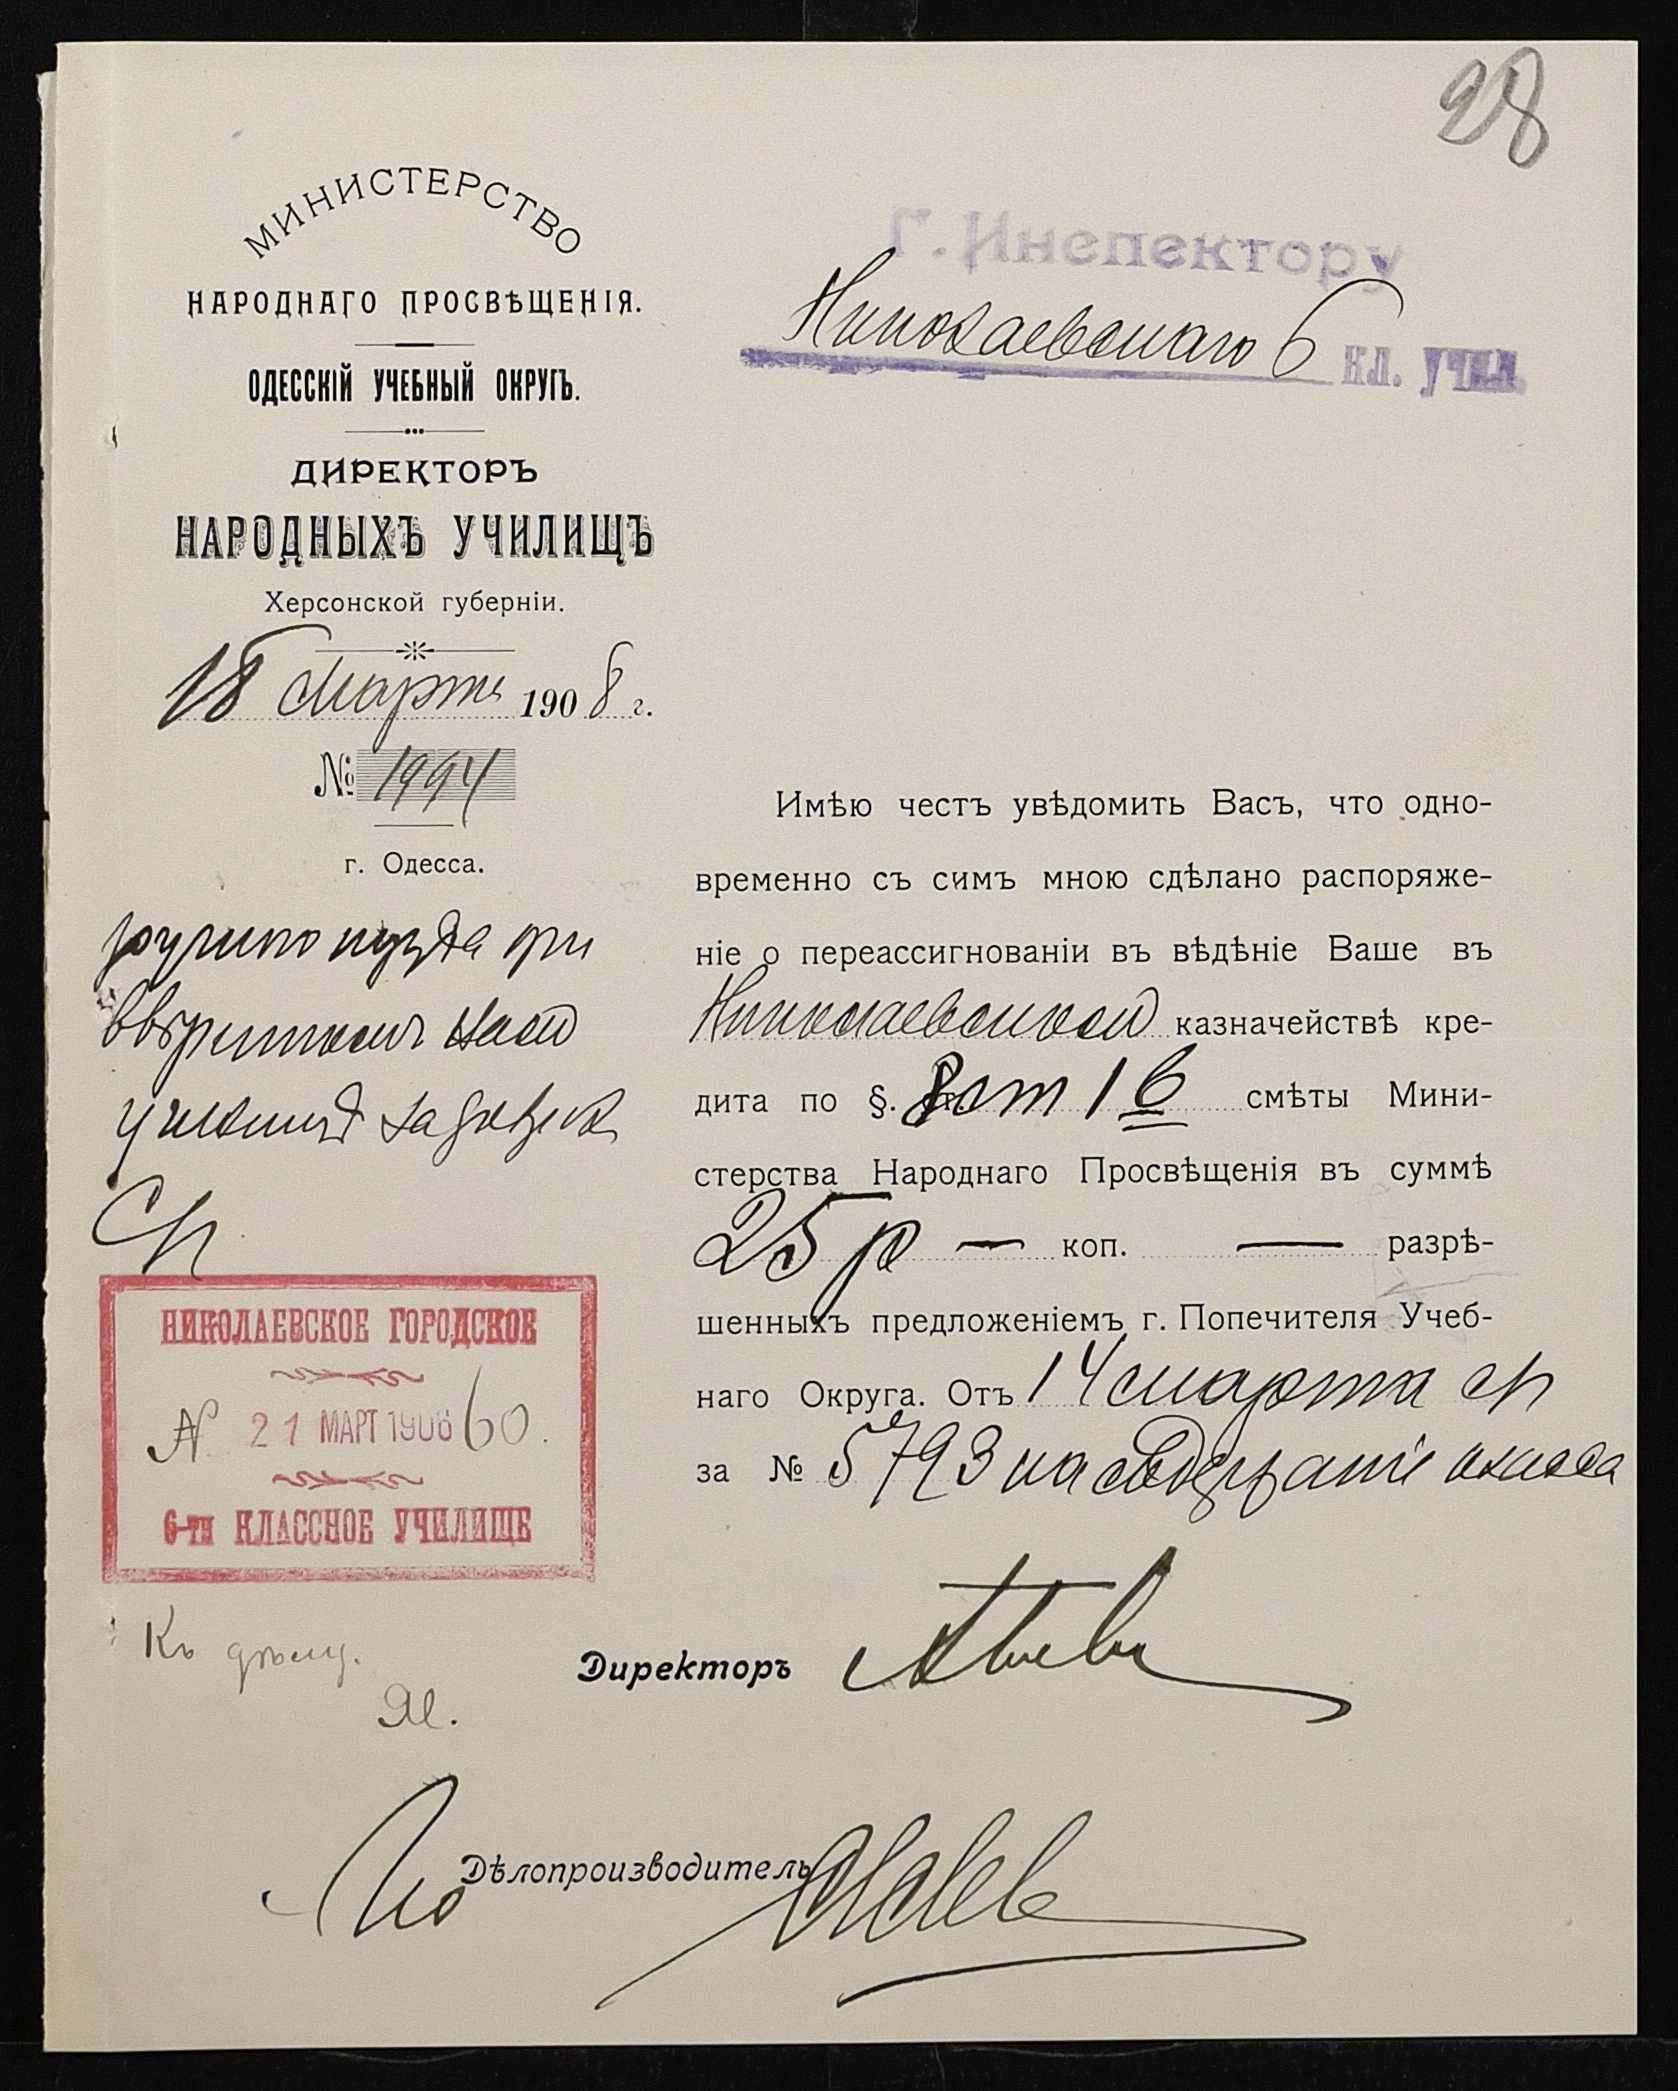 28
МИНИСТЕРСТВО
НАРОДНАГО ПРОСВѢЩЕНІЯ.
ОДЕССКІЙ УЧЕБНЫЙ ОКРУГЪ.
ДИРЕКТОРЪ
НАРОДНЫХЪ УЧИЛИЩЪ
Херсонской губерніи.
18 Марта 1908 г.
№ 1994
г. Одесса.
Г. Инспектору
Николаевскаго 6 кл. учил.
Имѣю честъ увѣдомить Васъ, что одно-
временно съ симъ мною сдѣлано распоряже-
ніе о переассигнованіи въ вѣдѣніе Ваше въ
Николаевском казначействѣ кре-
дита по §. 8 ст 1 в смѣты Мини-
стерства Народнаго Просвѣщенія въ суммѣ
25 р — коп. — разрѣ-
шенныхъ предложеніемъ г. Попечителя Учеб-
наго Округа. Отъ 14 марта
за № 5793 на содержаніе класса
при
НИКОЛАЕВСКОЕ ГОРОДСКОЕ
N 21 МАРТ 1908 60.
6-ти КЛАССНОЕ УЧИЛИЩЕ
Къ дѣлу.
Директоръ
Дѣлопроизводитель